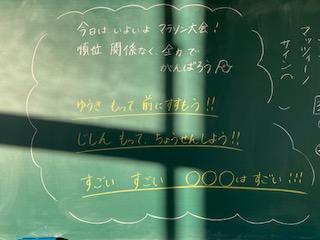 今日は いよいよ マラソン大会!
順位 関係なく、全力で
がんばろう
ゆうき もって 前にすすもう!!
じしん もって、ちょうせんしよう!!
すごい すごい ○○○は すごい!!!
マッツィーノ
サイン